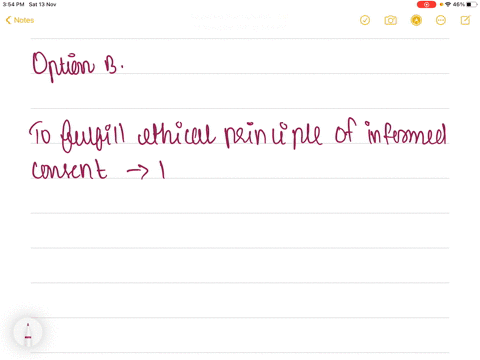 3:54 PM Sat 13 Nov
46%
Notes
Option B.
To fulfill ethical principle of informed
consent →